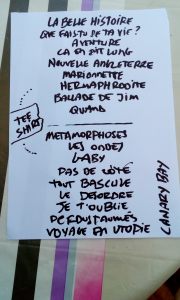 LA BELLE HISTOIRE
QUE FAIS TU DE TA VIE ?
AVENTURE
CA EN DIT LONG
NOUVELLE ANGLETERRE
MARIONNETTE
HERMAPHRODITE
BALLADE DE JIM
QUAND
TEE SHIRT
METAMORPHOSES
LES ONDES
GABY
PAS DE CÔTÉ
TOUT BASCULE
LE DESORDRE
JE T'OUBLIE
PERDUS
VOYAGE EN UTOPIE
CANARY BAY